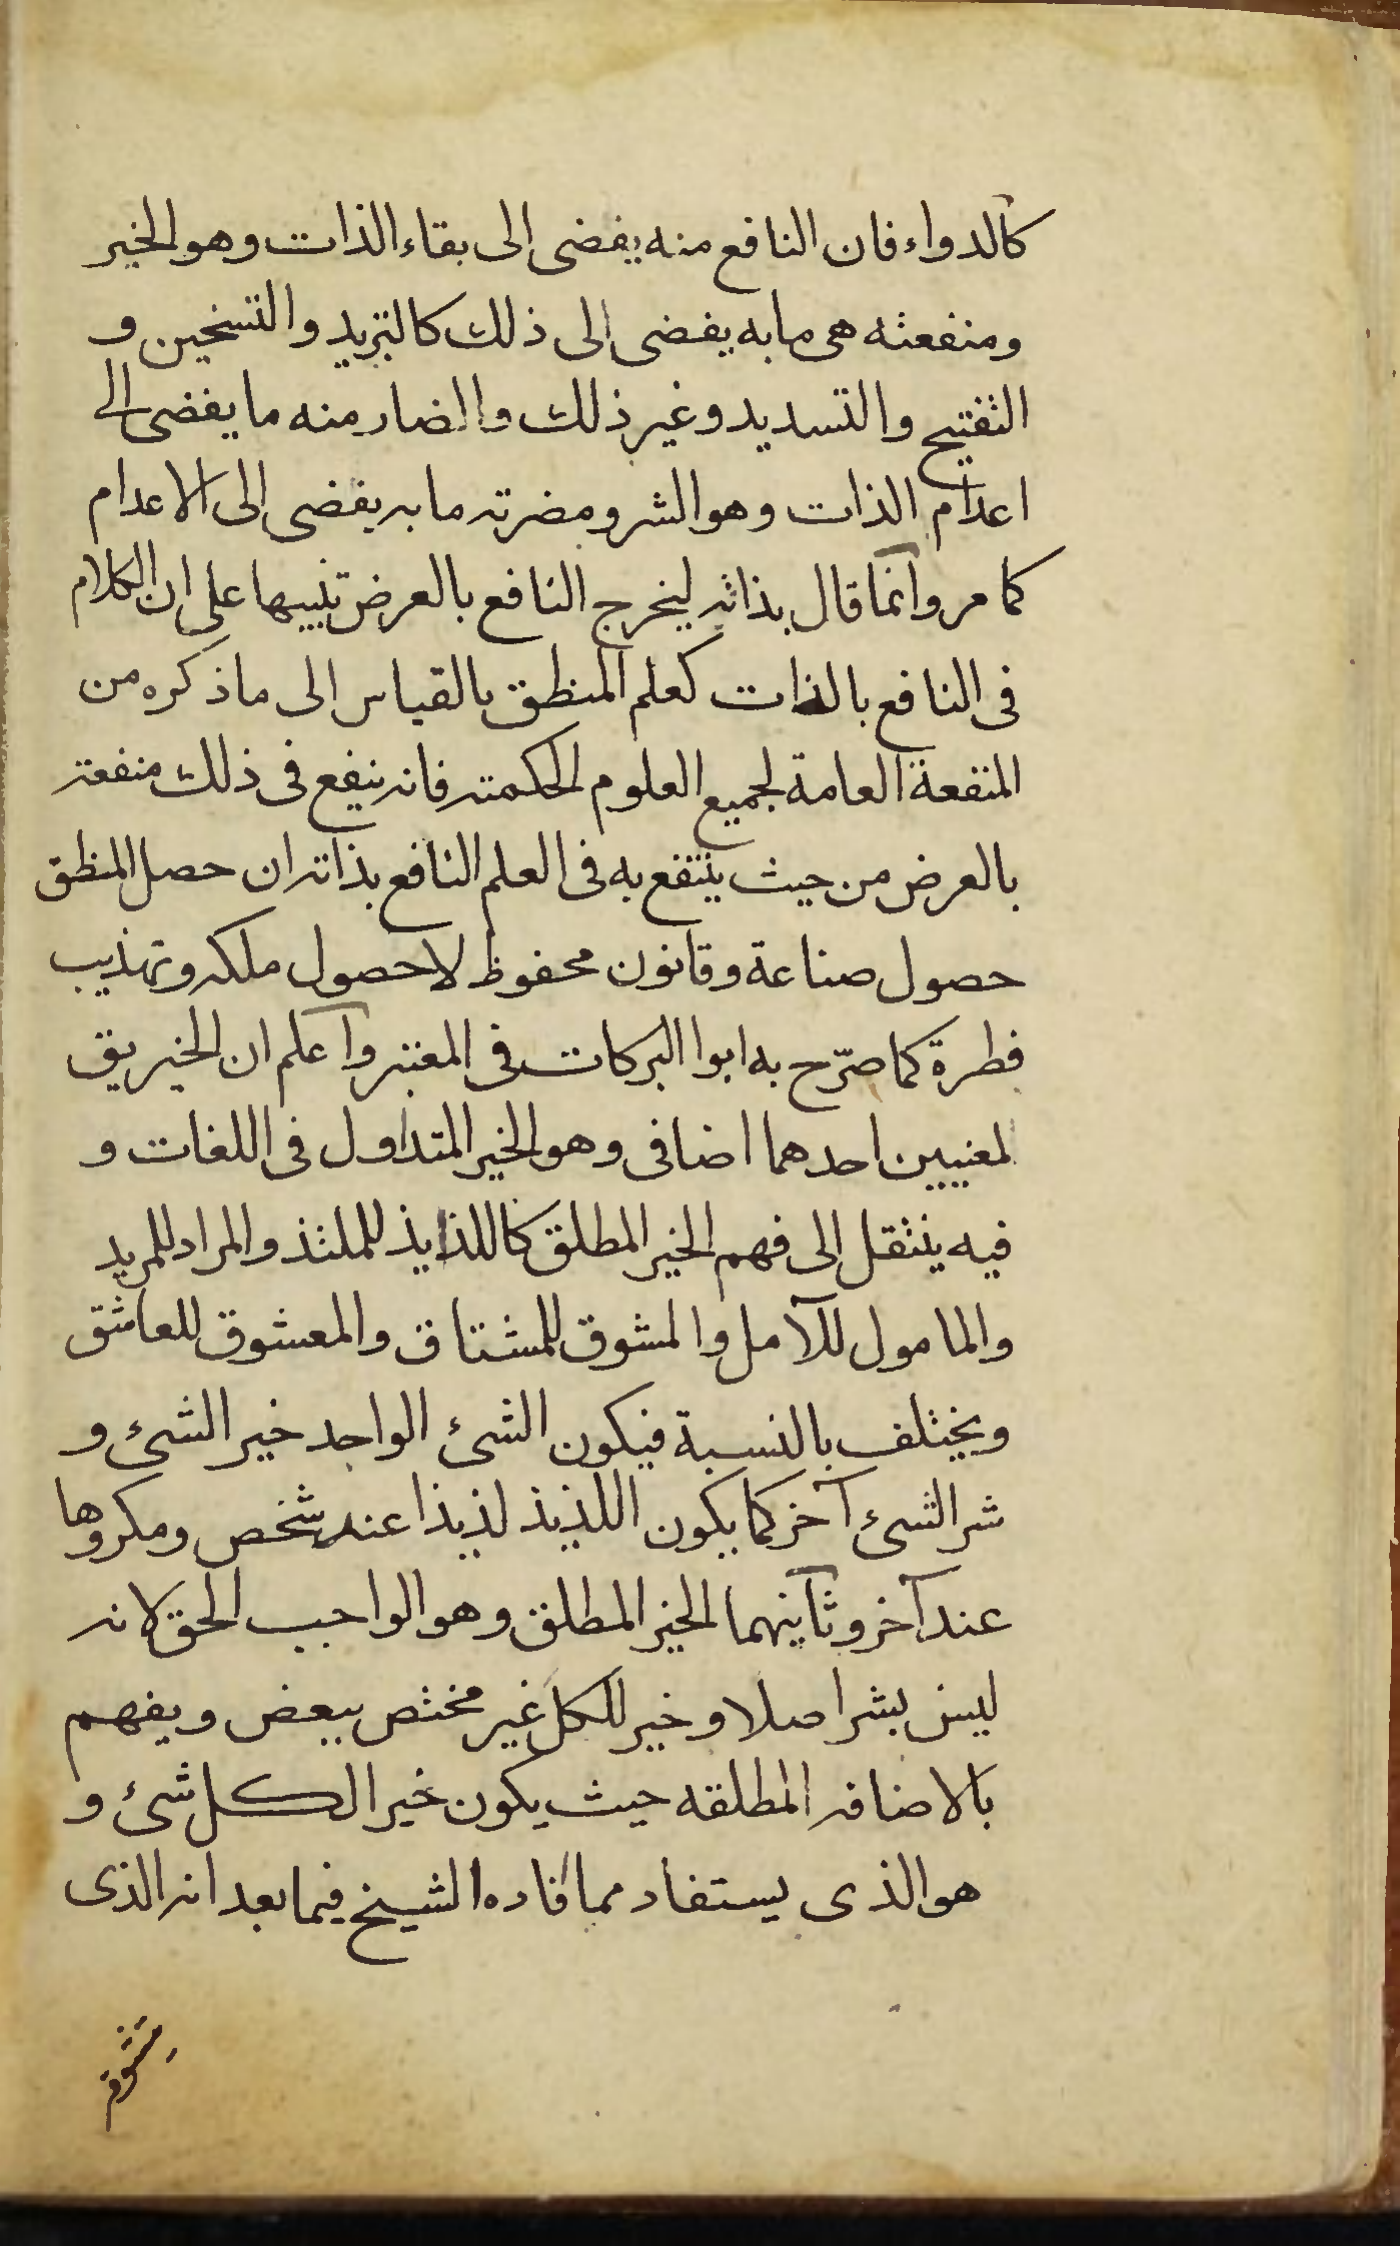 كالدواء فان النافع منه يفضى الى بقاء الذات وهو الخير
ومنفعته هى ما به يفضى الى ذلك كالتبريد والتسخين و
التفتيح والتسديد وغير ذلك والضار منه ما يفضى الى
اعدام الذات وهو الشر ومضرته ما به يفضى الى الاعدام
كما مر وانما قال بذاته ليخرج النافع بالعرض تنبيها على ان الكلام
فى النافع بالذات كعلم المنطق بالقياس الى ما ذكره من
المنفعة العامة لجميع العلوم الحكمته فانه ينفع فى ذلك منفعته
بالعرض من حيث ينتفع به فى العلم النافع بذاته ان حصل المنطق
حصول صناعة وقانون محفوظ لا حصول ملكه وتهذيب
فطرة كما صرّح به ابوا البركات فى المعتبر وآعلم ان الخير يق
لمعنيين احدهما اضافى وهو الخير المتداول فى اللغات و
فيه ينتقل الى فهم الخير المطلق كاللذايذ للملتذ والمراد للمريد
والمامول للآمل والمشوق للمشتاق والمعشوق للعاشق
ويختلف بالنسبة فيكون الشئ الواحد خير الشئ و
شر الشئ آخر كما يكون اللذيذ لذيذا عند شخص ومكروها
عند آخر وثانيهما الخير المطلق وهو الواجب الحق لانه
ليس بشر اصلا وخير للكل غير مختص ببعض ويفهم
بالاضافه المطلقه حيث يكون خيرا لكل شئ و
هو الذى يستفاد مما افاده الشيخ فيما بعد انه الذى
يتشوقه